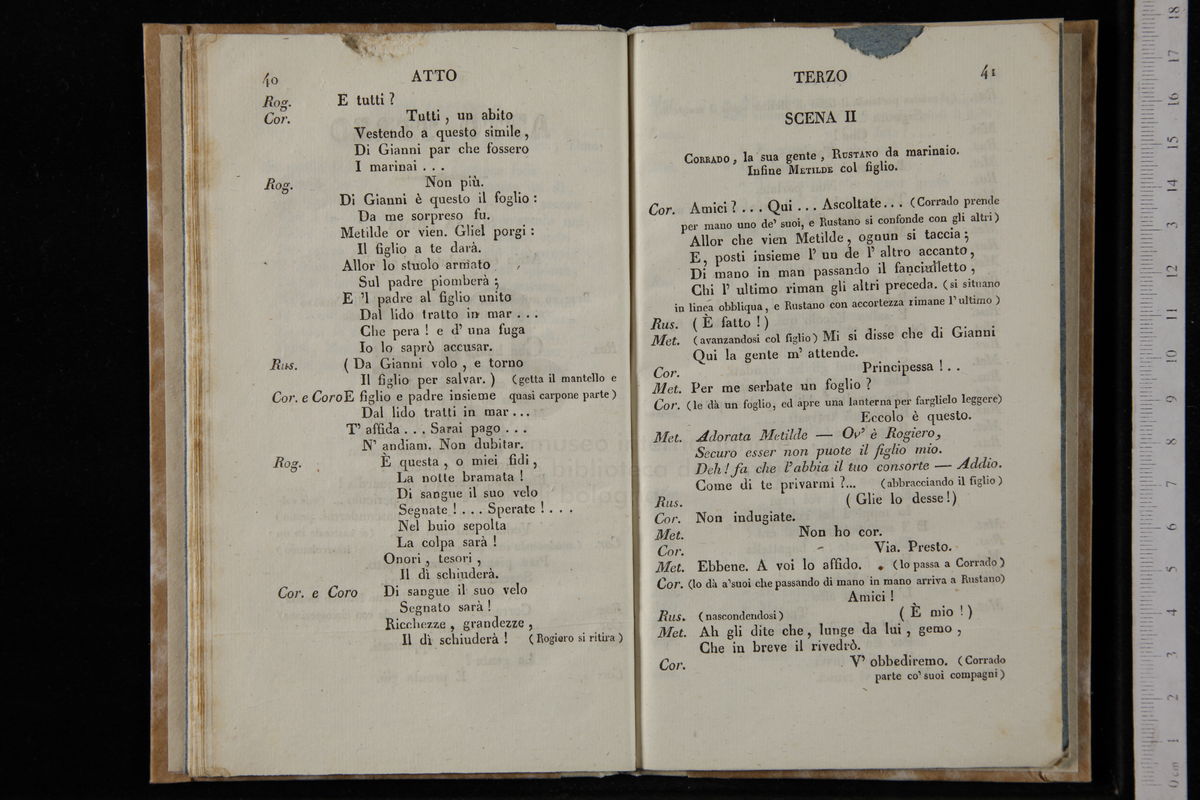 40
ATTO
Rog. E tutti ?
Cor. Tutti , un abito
Vestendo a questo simile ,
Di Gianni par che fossero
I marinai . . .
Rog. Non più.
Di Gianni è questo il foglio :
Da me sorpreso fu.
Metilde or vien. Gliel porgi :
Il figlio a te darà.
Allor lo stuolo armato
Sul padre piomberà ;
E 'l padre al figlio unito
Dal lido tratto in mar . . .
Che pera ! e d' una fuga
Io lo saprò accusar.
Rus. ( Da Gianni volo , e torno
Il figlio per salvar. ) (getta il mantello e
Cor. e Coro E figlio e padre insieme quasi carpone parte )
Dal lido tratti in mar ...
T' affida . . . Sarai pago . . .
N' andiam. Non dubitar.
Rog. È questa , o miei fidi ,
La notte bramata !
Di sangue il suo velo
Segnate ! . . . Sperate ! . . .
Nel buio sepolta
La colpa sarà !
Onori , tesori ,
Il dì schiuderà.
Cor. e Coro Di sangue il suo velo
Segnato sarà !
Ricchezze , grandezze ,
Il dì schiuderà ! ( Rogiero si ritira )
TERZO
41
SCENA II
CORRADO , la sua gente , RUSTANO da marinaio.
Infine METILDE col figlio.
Cor. Amici ? . . . Qui . . . Ascoltate. . . (Corrado prende
per mano uno de' suoi, e Rustano si confonde con gli altri)
Allor che vien Metilde, ognun si taccia ;
E, posti insieme l' un de l' altro accanto,
Di mano in man passando il fanciulletto ,
Chi l' ultimo riman gli altri preceda. (si situano
in linea obbliqua, e Rustano con accortezza rimane l' ultimo )
Rus. ( È fatto !)
Met. (avanzandosi col figlio) Mi si disse che di Gianni
Qui la gente m' attende.
Cor. Principessa ! . .
Met. Per me serbate un foglio ?
Cor. (le dà un foglio, ed apre una lanterna per farglielo leggere)
Eccolo è questo.
Met. Adorata Metilde — Ov' è Rogiero,
Securo esser non puote il figlio mio.
Deh! fa che l'abbia il tuo consorte — Addio.
Come di te privarmi ?... (abbracciando il figlio )
Rus. ( Glie lo desse!)
Cor. Non indugiate.
Met. Non ho cor.
Cor. Via. Presto.
Met. Ebbene. A voi lo affido. (lo passa a Corrado )
Cor. (lo dà a'suoi che passando di mano in mano arriva a Rustano)
Amici !
Rus. (nascondendosi ) ( È mio ! )
Met. Ah gli dite che , lunge da lui , gemo ,
Che in breve il rivedrò.
Cor. V' obbediremo. (Corrado
parte co' suoi compagni )
museo
biblioteca
di bologna
0 cm 1 2 3 4 5 6 7 8 9 10 11 12 13 14 15 16 17 18